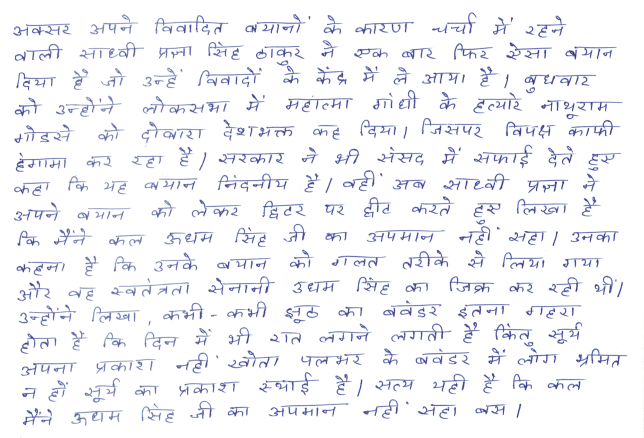 अक्सर अपने विवादित बयानों के कारण चर्चा में रहने
वाली साध्वी प्रज्ञा सिंह ठाकुर ने एक बार फिर ऐसा बयान
दिया है जो उन्हें विवादों के केंद्र में ले आया है। बुधवार
को उन्होंने लोकसभा में महात्मा गांधी के हत्यारे नाथूराम
गोडसे को दोबारा देशभक्त कह दिया। जिसपर विपक्ष काफी
हंगामा कर रहा है। सरकार ने भी संसद में सफाई देते हुए
कहा कि यह बयान निंदनीय है। वहीं अब साध्वी प्रज्ञा ने
अपने बयान को लेकर ट्विटर पर ट्वीट करते हुए लिखा है
कि मैंने कल ऊधम सिंह जी का अपमान नहीं सहा। उनका
कहना है कि उनके बयान को गलत तरीके से लिया गया
और वह स्वतंत्रता सेनानी उधम सिंह का जिक्र कर रही थीं।
उन्होंने लिखा, कभी-कभी झूठ का बवंडर इतना गहरा
होता है कि दिन में भी रात लगने लगती है किंतु सूर्य
अपना प्रकाश नहीं खोता पलभर के बवंडर में लोग भ्रमित
न हों सूर्य का प्रकाश स्थाई है। सत्य यही है कि कल
मैंने ऊधम सिंह जी का अपमान नहीं सहा बस।